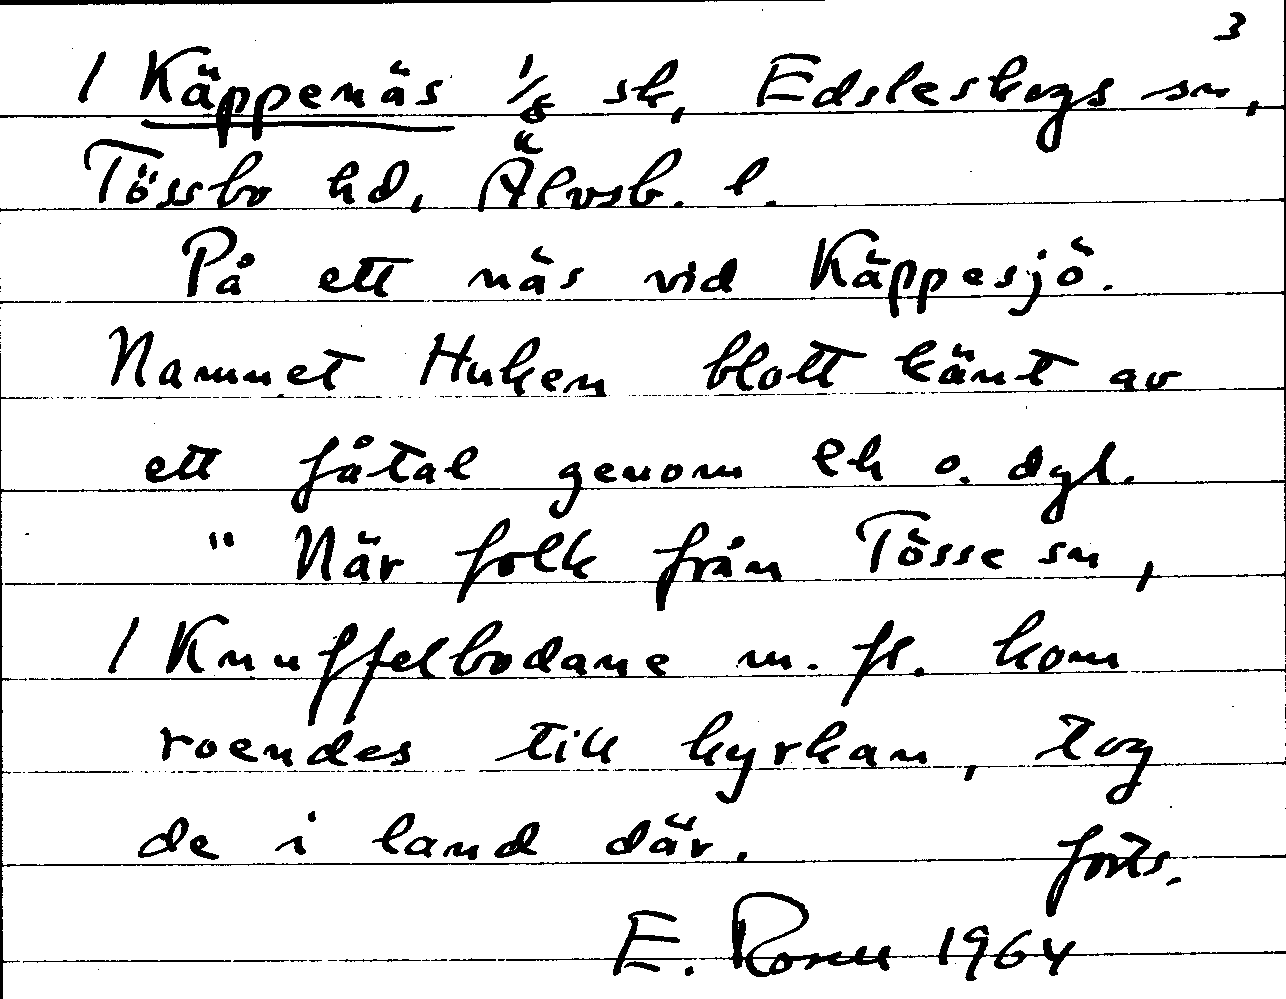 3
/ Käppenäs 1/8 sk, Edsleskogs sn,
Tössbo hd, Älvsb. l.
På ett näs vid Käppesjö.
Namnet Huken blott känt av
ett fåtal genom ek o. dyl.
" När folk från Tösse sn,
/ Knuffelbodane m. fl. kom
roendes till kyrkan, tog
de i land där.
forts.
E. 1964